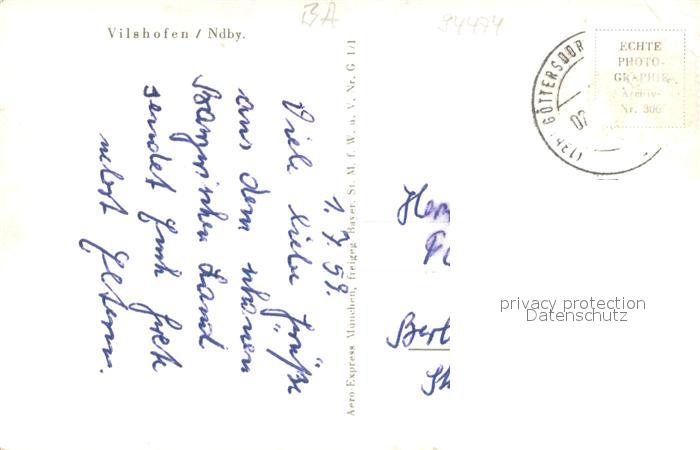 BA
94474
Vilshofen / Ndby.
ECHTE
PHOTO-
GRAPHIE
Archiv-
Nr. 306
(13b) GÖTTERSDORF
1.7.59.
Viele liebe Grüße
aus dem schönen
Bayrischen Land
sendet Euch
nebst Eltern.
Aero-Express München, freigeg. Bayer. St. M. f. W. u. V. Nr. G 1/1
Her
Bert
privacy protection
Datenschutz